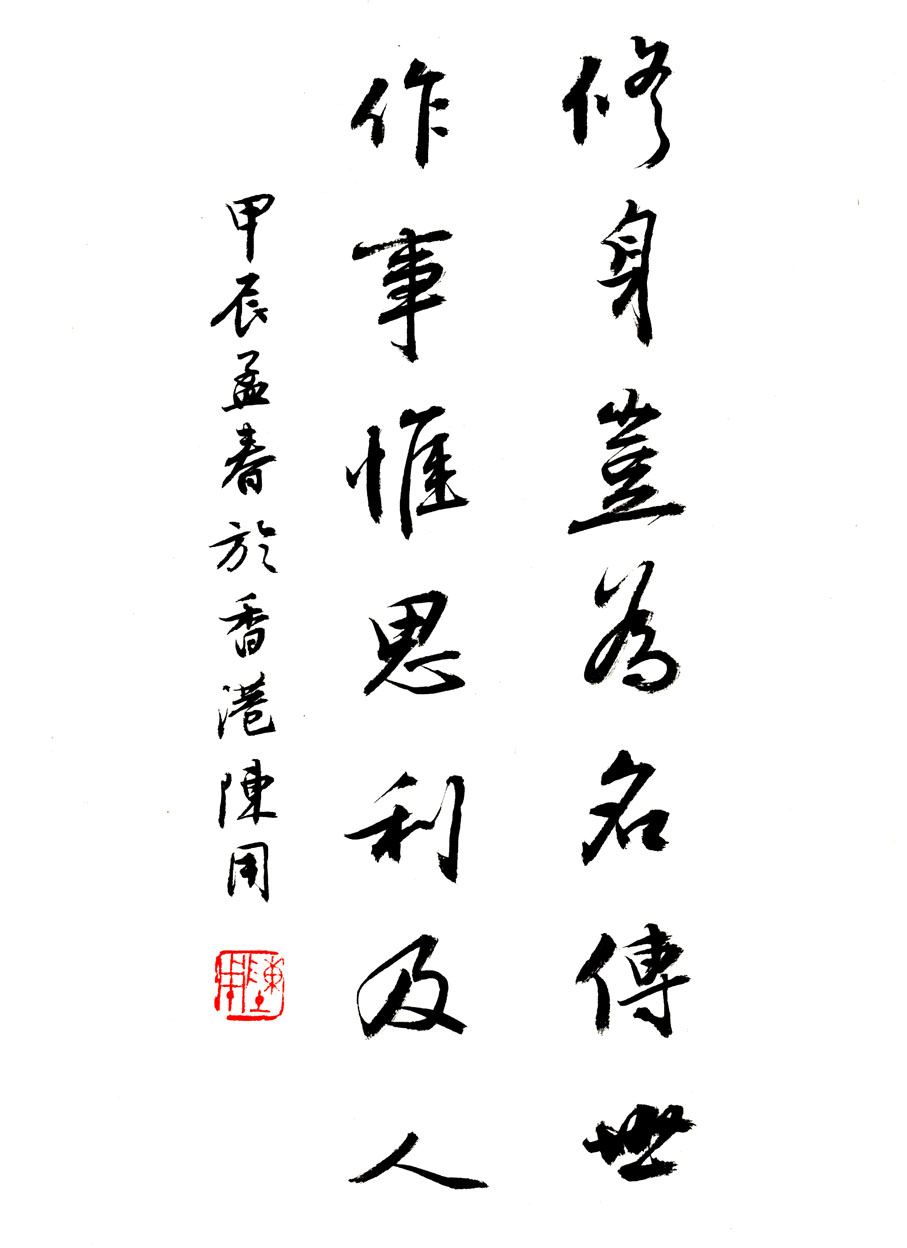 修身豈為名傳世
作事惟思利及人
甲辰孟春於香港陳用